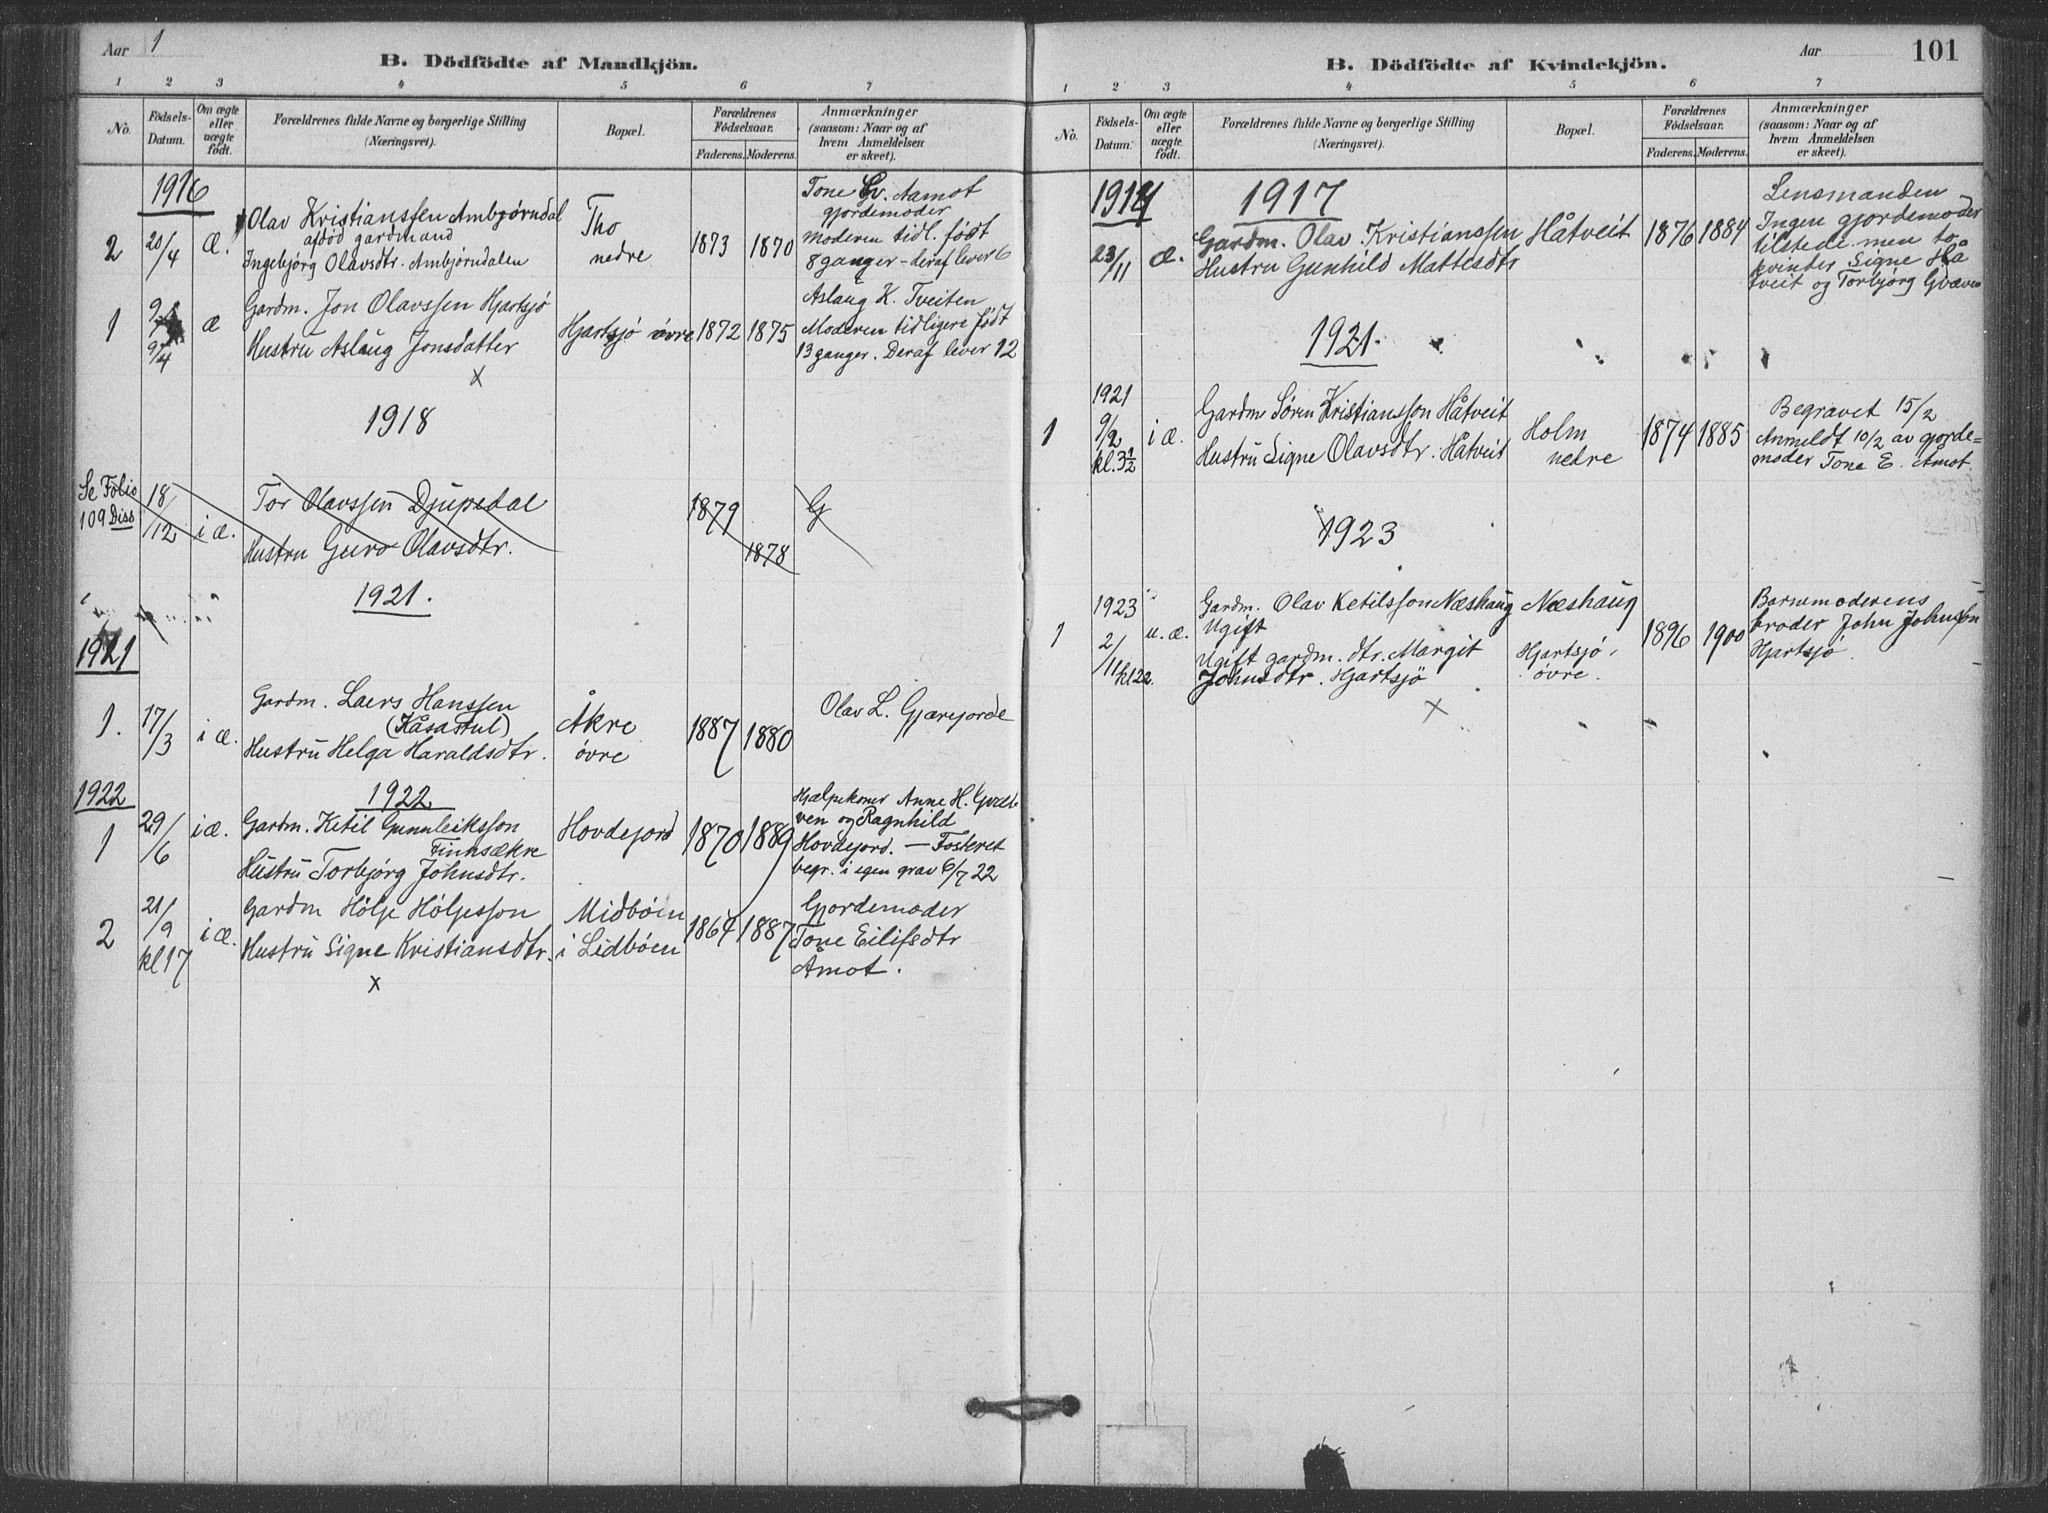 Aar 1
B. Dödfödte af Mandkjön.
1 2 3 4 5 6 7
No.
Födsels-
Datum.
Om ægte
eller
uægte
født.
Forældrenes fulde Navne og borgerlige Stilling
(Næringsvei).
Bopæl.
Forældrenes
Födselsaar.
Faderens. Moderens.
Anmærkninger
(saasom: Naar og af
hvem Anmeldelsen
er skeet).
1916
2
20/4
æ.
Olav Kristianssen Ambjørndal
afdød gardmand
Ingebjørg Olavsdtr. Ambjørndalen
Tho
nedre
1873
1870
Tone Ev. Aamot
gjordemoder
Moderen tidl. født
8 ganger - deraf lever 6
1
9/4
æ
Gardm. Jon Olavssen Hjartsjø
Hustru Aslaug Jonsdatter
x
Hjartsjø øvre
1872
1875
Aslaug K. Tveiten
Moderen tidligere født
13 ganger. Deraf lever 12
1918
Se Folio
109 Diss
18/12
i æ.
Tor Olavssen Djupedal
Hustru Guro Olavsdtr.
1879
1878
G
1921.
1921
1.
17/3
i æ.
Gardm. Laers Hanssen
(Kåsastul)
Hustru Helga Haraldsdtr.
Åkre
øvre
1887
1880
Olav L. Gjærejorde
1922
1922
1
29/6
i æ.
Gardm. Ketil Gunnleiksson
Finnsækre
Hustru Torbjørg Johnsdtr.
Hovdejord
1870
1889
Hjælpekoner Anne H. Gvæl-
ven og Ragnhild
Hovdejord. — Fosteret
begr. i egen grav 6/7 22
2
21/9
kl 17
i æ.
Gardm Hølje Høljesson
Hustru Signe Kristiansdtr.
x
Midbøen
i Lidbøen
1864
1887
Gjordemoder
Tone Eilifsdtr
Åmot.
Aar
101
B. Dödfödte af Kvindekjön.
1 2 3 4 5 6 7
No.
Födsels-
Datum.
Om ægte
eller
uægte
födt.
Forældrenes fulde Navne og borgerlige Stilling
(Næringsvei).
Bopæl.
Forældrenes
Födselsaar.
Faderens. Moderens.
Anmærkninger
(saasom: Naar og af
hvem Anmeldelsen
er skeet).
1917
23/11
æ.
Gardm. Olav Kristianssen
Hustru Gunhild Mattesdtr
Håtveit
1876
1884
Lensmanden
Ingen gjordemoder
tilstede men to
kvinder Signe Hå
tveit og Torbjørg Gvæven
1921.
1
1921
9/2
kl. 3½
i æ.
Gardm Søren Kristiansson Håtveit
Hustru Signe Olavsdtr. Håtveit
Holm
nedre
1874
1885
Begravet 15/2
Anmeldt 10/2 av gjorde=
moder Tone E. Amot.
1923
1
1923
2/11 kl 22.
u. æ.
Gardm. Olav Ketilsson Næshaug
Ugift
Ugift gardm. dtr. Margit
Johnsdtr. Hjartsjö
x
Næshaug
Hjartsjø,
øvre.
1896
1900
Barnemoderens
broder John Johnsson
Hjartsjø.